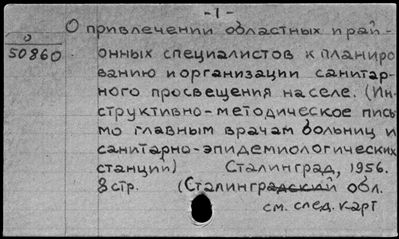 -1-
О привлечении областных и рай-
О
50860
онных специалистов к планиро
ванию и организации санитар-
ного просвещения на селе. (Ин-
структивно-методическое пись
мо главным врачам больниц и
санитарно-эпидемиологических
станций) Сталинград, 1956.
8 стр. (Сталинградский обл.
см. след. карт